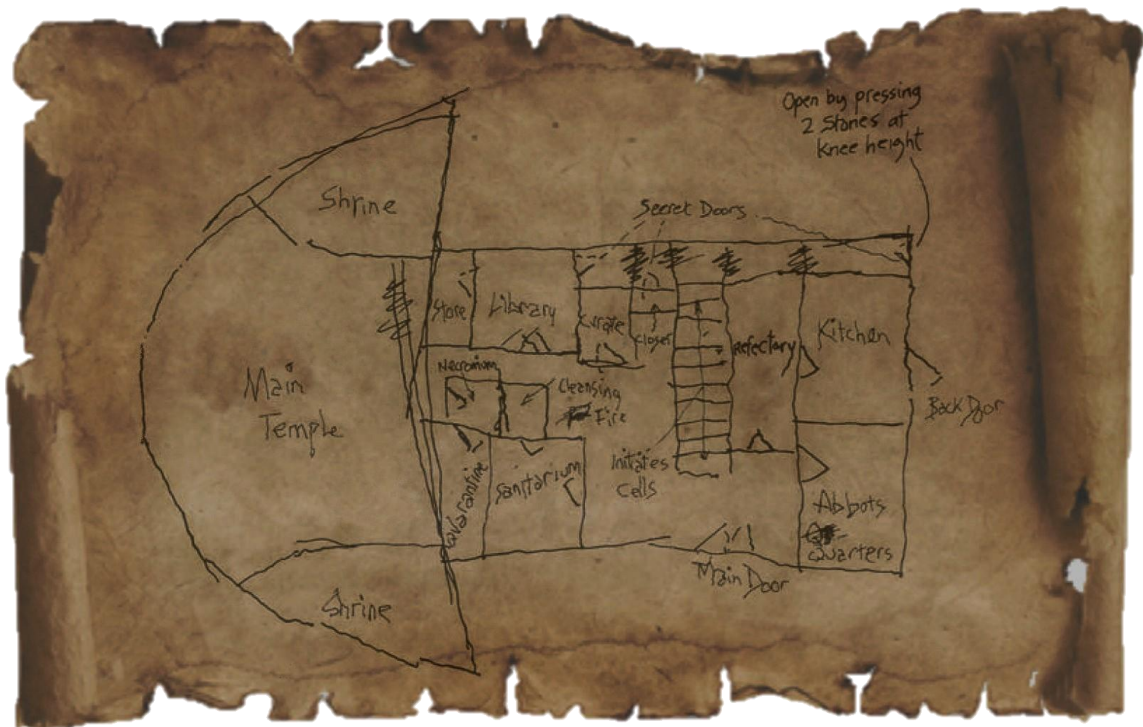 Open by pressing
2 Stones at
Knee height
Secret Doors
Shrine
Store
Library
Curate
Closet
Refectory
Kitchen
Main
Temple
Necronium
Cleansing
Fire
Back Door
Quarantine
Sanitarium
Initiates
Cells
Abbots
Quarters
Main Door
Shrine